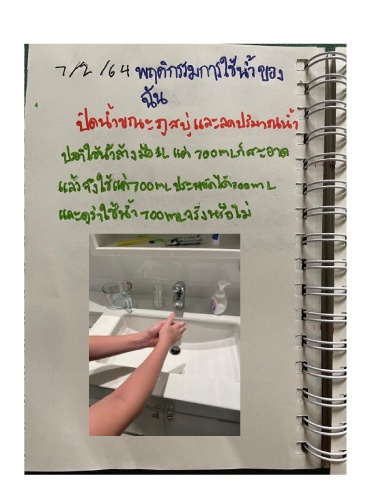 7/2/64 พฤติกรรมการใช้น้ำของ
ฉัน
ปิดน้ำขณะถูสบู่และลดปริมาณน้ำ
ปกติใช้น้ำล้างมือ 1L แค่ 700mL ก็สะอาด
แล้วจึงใช้แค่ 700mL ประหยัดได้ 300mL
และดูว่าใช้น้ำ 700mL จริงหรือไม่